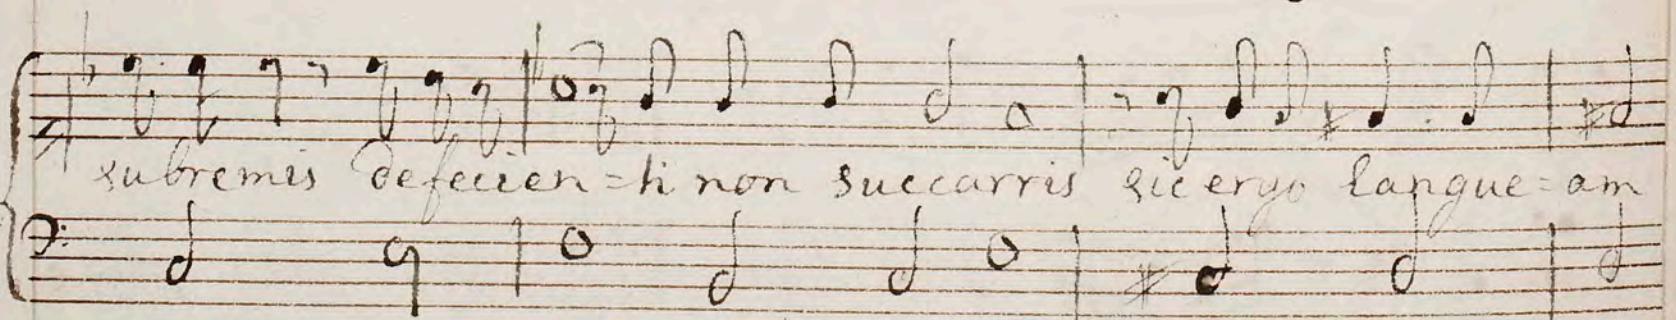 subremis defecien=ti non succarris sic ergo langue=am